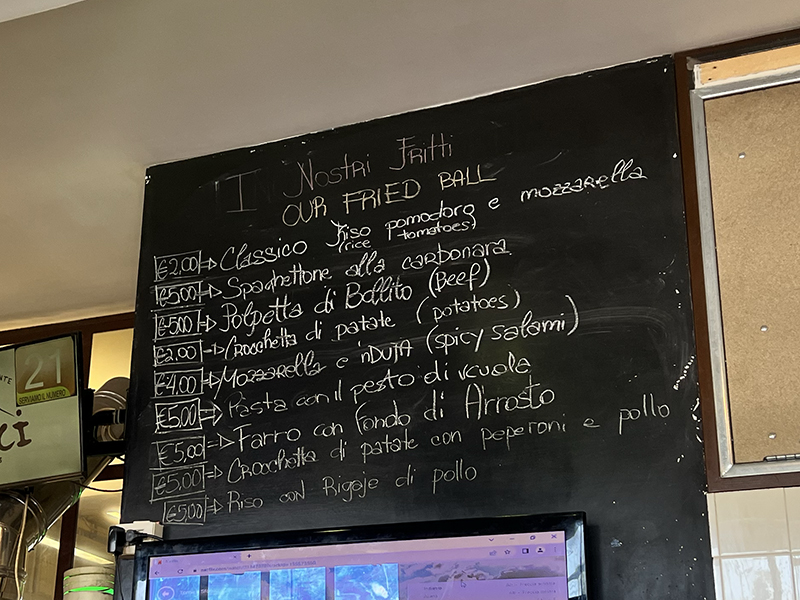 I Nostri Fritti
OUR FRIED BALL
€2,00 → Classico Riso pomodoro e mozzarella
(rice tomatoes)
€5,00 → Spaghettone alla carbonara
€5,00 → Polpetta di Bollito (Beef)
€2,00 → Crocchetta di patate (potatoes)
€4,00 → Mozzarella e 'nDUJA (spicy salami)
€5,00 → Pasta con il pesto di rcuola
€5,00 → Farro con fondo di Arrosto
€5,00 → Crocchetta di patate con peperoni e pollo
€5,00 → Riso con Rigaje di pollo
21
SERVIAMO IL NUMERO